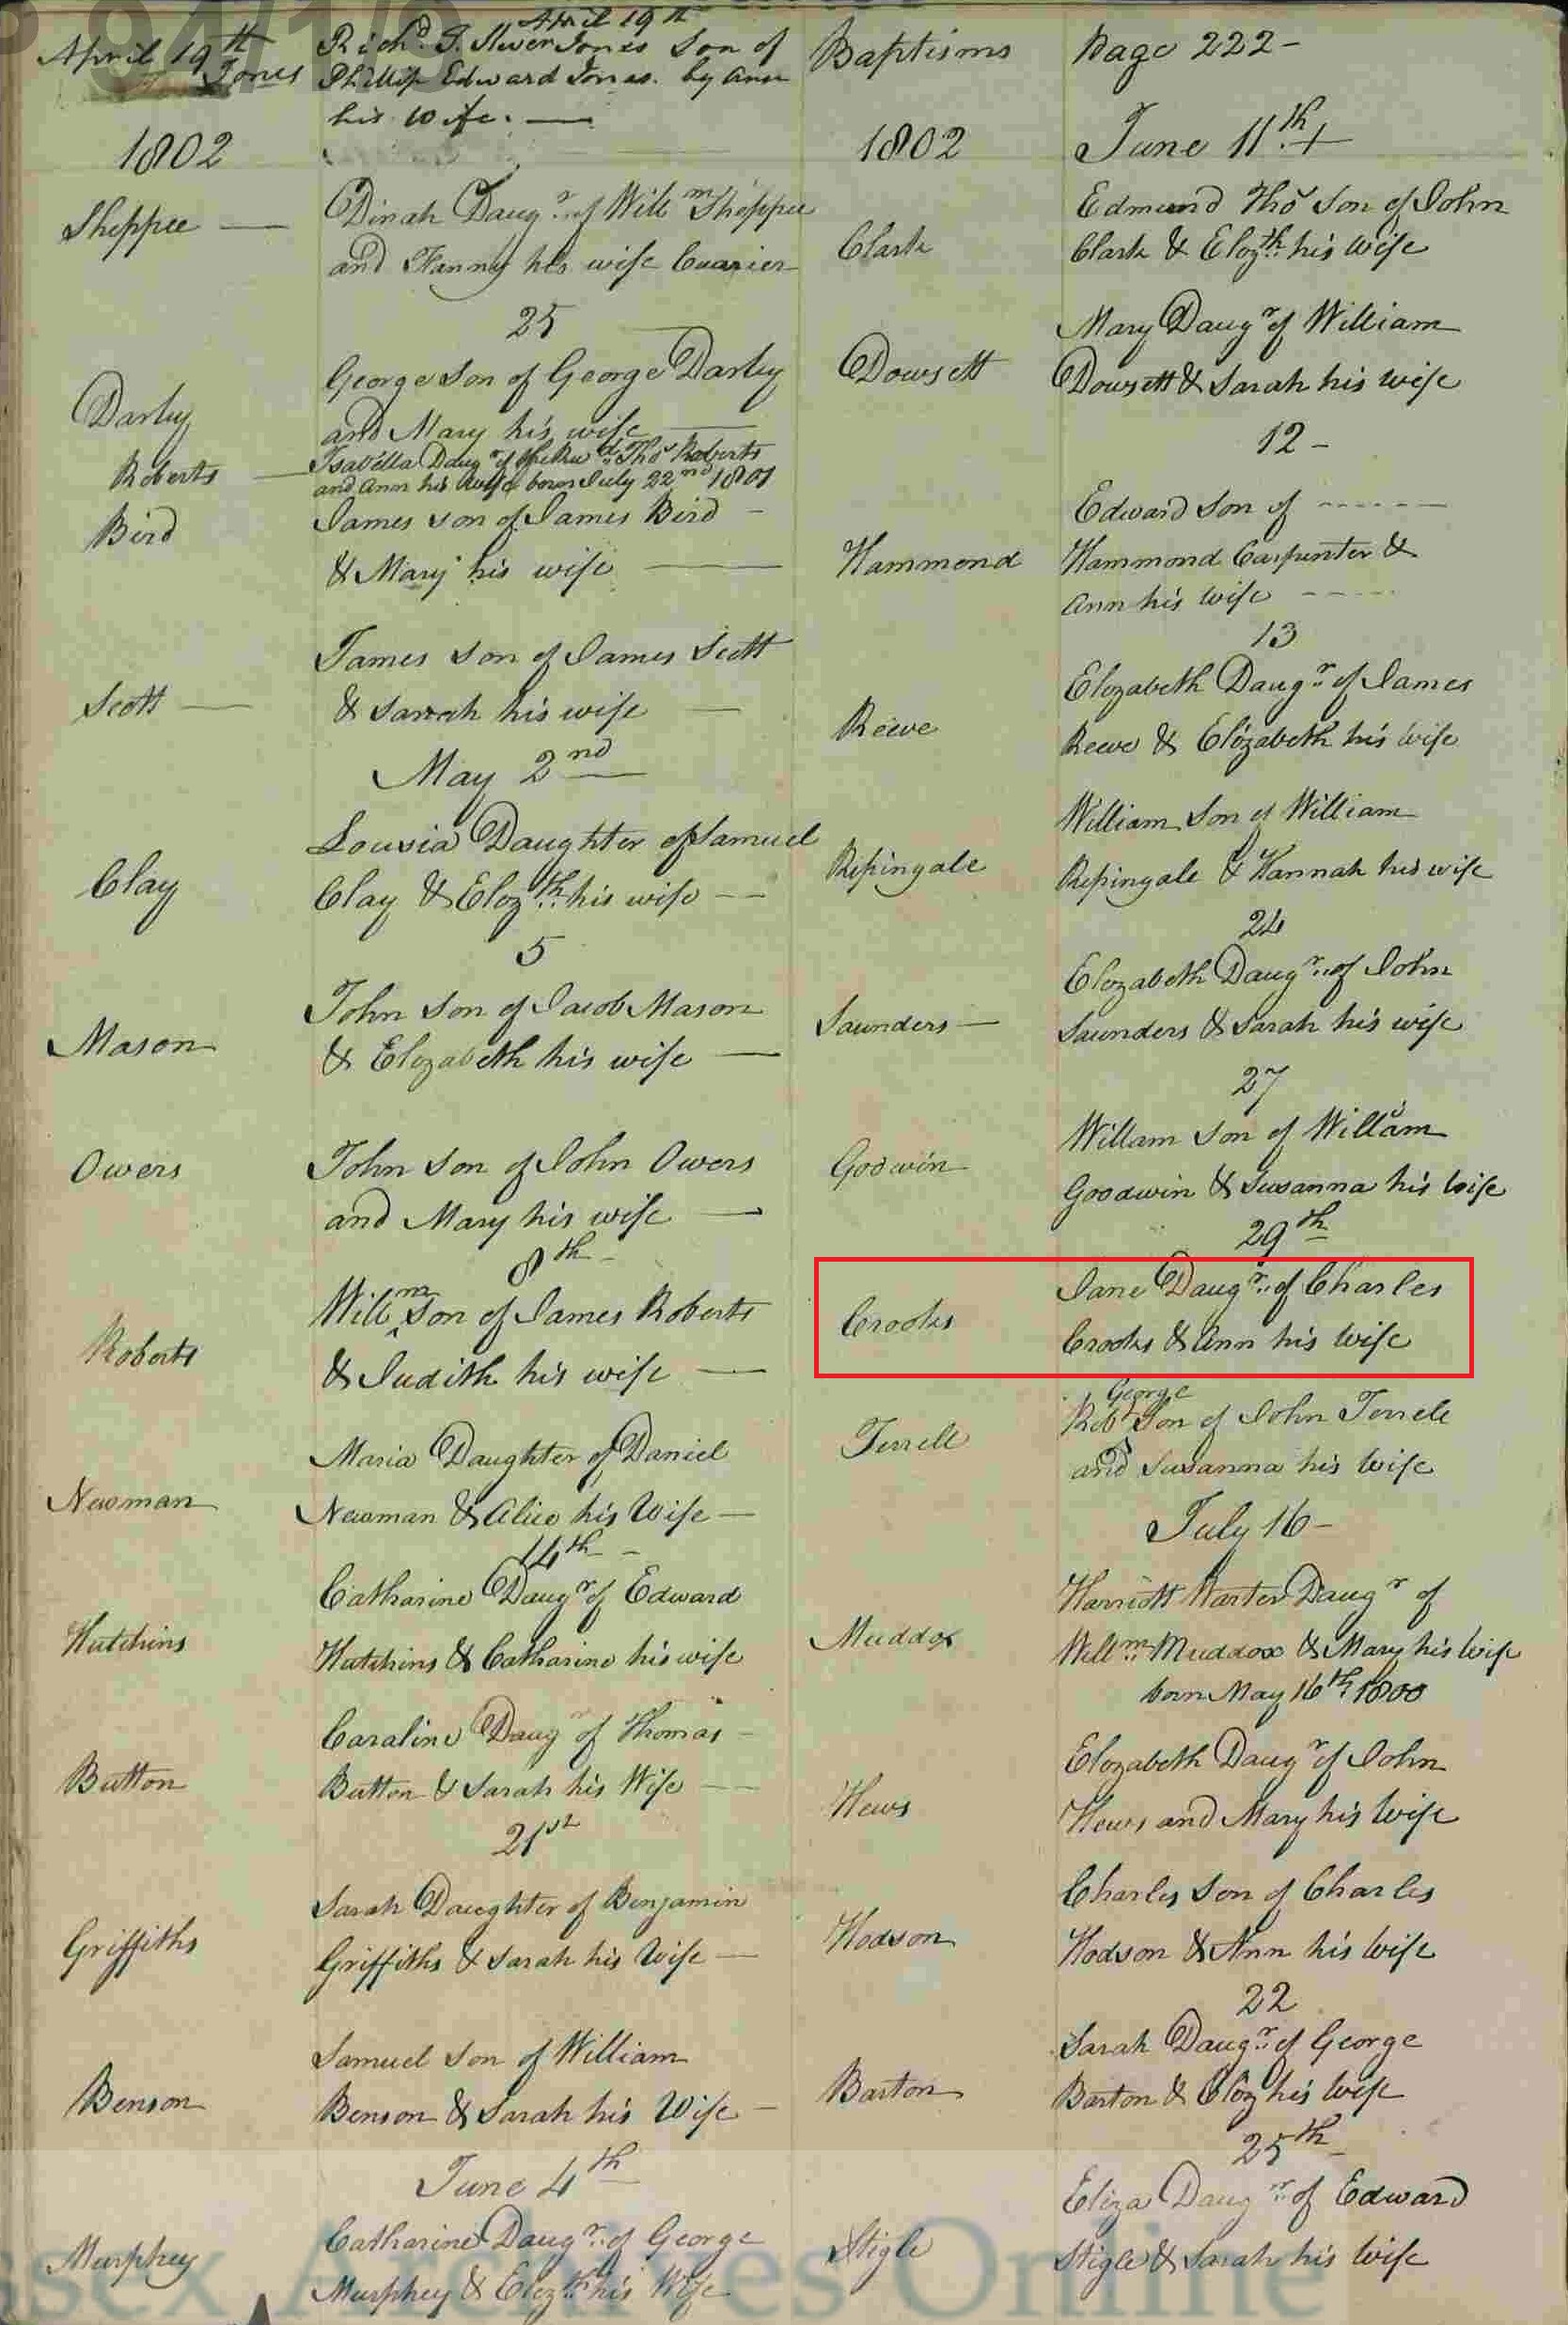 April 19th
April 19th Jones
Richd. S. Iliver Jones Son of
Phillip Edward Jones. by Ann
his Wife.
1802
Sheppee
Dinah Daugr. of Willm Sheppee
and Fanny his wife
25
Darby
George Son of George Darby
and Mary his wife
Roberts
Isabella Daugr of the Revd. Thos Roberts
and Ann his Wife born July 22nd 1801
Bird
James son of James Bird
& Mary his wife
Scott
James Son of James Scott
& Sarah his wife
May 2nd
Clay
Lousia Daughter of Samuel
Clay & Elozth his wife
5
Mason
John Son of Jacob Mason
& Elozabeth his wife
Owers
John Son of John Owers
and Mary his wife
8th
Roberts
Willm Son of James Roberts
& Judith his wife
Newman
Maria Daughter of Daniel
Newman & Alice his Wife
14th
Hutchins
Catharine Daugr of Edward
Hutchins & Catharine his wife
Button
Caraline Daugr of Thomas
Button & Sarah his Wife
21st
Griffiths
Sarah Daughter of Benjamin
Griffiths & Sarah his Wife
Benson
Samuel Son of William
Benson & Sarah his Wife
June 4th
Murphey
Catharine Daugr. of George
Murphey & Elozth his Wife
Baptisms Page 222
1802 June 11th
Clark
Edmund Thos Son of John
Clark & Elozth his Wife
Dowsett
Mary Daugr of William
Dowsett & Sarah his wife
12
Hammond
Edward Son of
Hammond Carpenter &
Ann his Wife
13
Reeve
Elozabeth Daugr. of James
Reeve & Elozabeth his Wife
Repingale
William Son of William
Repingale & Hannah his wife
24
Saunders
Elozabeth Daugr. of John
Saunders & Sarah his wife
27
Godwin
Willam Son of William
Goodwin & Susanna his Wife
29th
Crooks
Jane Daugr. of Charles
Crooks & Ann his Wife
Terrell
George
Robt Son of John Terrell
and Susanna his Wife
July 16
Muddox
Harriott Warter Daugr of
Willm Muddox & Mary his Wife
born May 16th 1800
Hews
Elozabeth Daugr of John
Hews and Mary his Wife
Hodson
Charles Son of Charles
Hodson & Ann his Wife
22
Barton
Sarah Daugr. of George
Barton & Eloz his Wife
25th
Stigle
Eliza Daugr. of Edward
Stigle & Sarah his Wife
Essex Archives Online